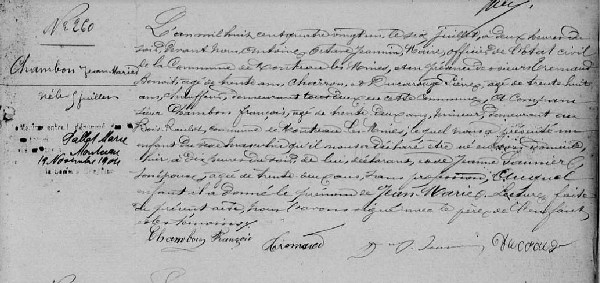 N° 260
Chambon Jean Marie
né le 5 juillet
Fallet Marie
Montceau
19 Novembre 1904
L'an mil huit cent quatre vingt un le six juillet, à deux heures du
soir, devant nous, Antoine Jeannin, Maire, officier de l'état civil
de la Commune de Montceau les Mines, et en présence de sieurs Cremaud
Benoit, âgé de trente ans, et Ducaroug Pierre, âgé de trente huit
ans, chauffeur, demeurant tous deux en cette commune, a comparu
sieur Chambon François, âgé de trente deux ans, mineur, demeurant au
Bois Roulot, commune de Montceau les Mines, lequel nous a présenté un
enfant du sexe masculin qu'il nous a déclaré être né au domicile
hier, à dix heures du soir de lui, déclarant, et de Jeanne
son épouse, âgée de trente deux ans, sans profession, auquel
enfant il a donné le prénom de Jean Marie. Lecture faite
du présent acte, nous l'avons signé avec le père de l'enfant,
et les témoins.
Chambon François
Cremaud